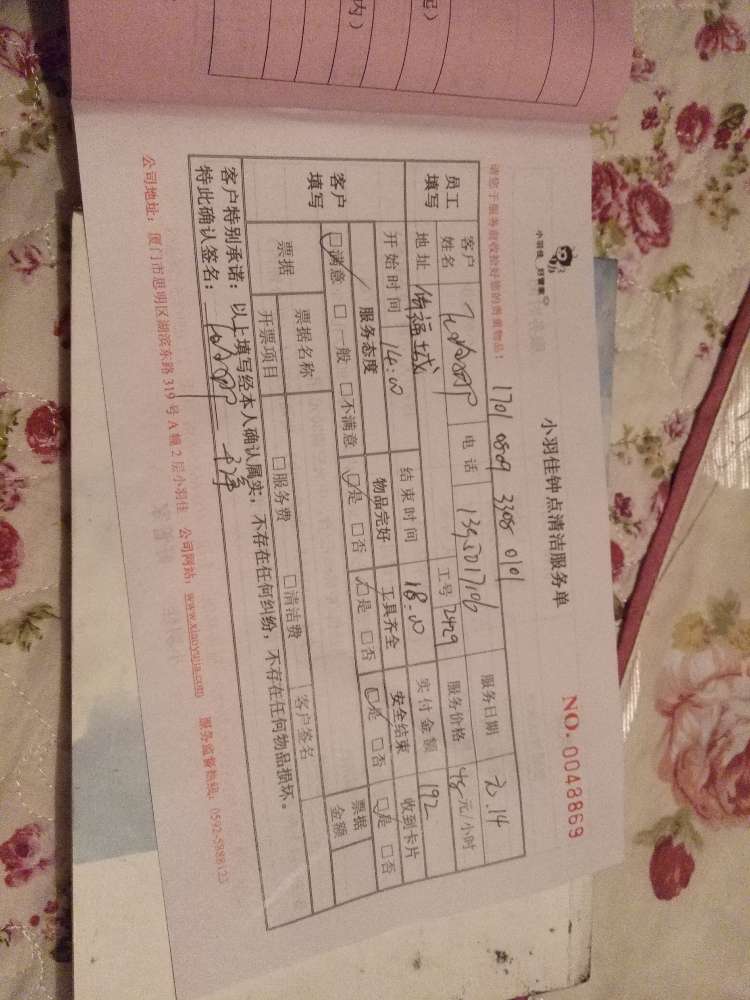 小羽佳钟点清洁服务单
小羽佳 好管家
NO.0048869
1701 0809 3308 0101
请您于服务前收拾好您的贵重物品：
员工填写 客户姓名 电话 服务日期
地址 工号 2429 服务价格 48元/小时
开始时间 14:00 结束时间 18:00 实付金额 192
客户填写 服务态度 物品完好 工具齐全 安全结束 收到卡片
□满意 □一般 □不满意 □是 □否 □是 □否 □是 □否 □是 □否
票据 票据名称 □服务费 □清洁费 客户签名 票据金额
开票项目
客户特别承诺：以上填写经本人确认属实，不存在任何纠纷，不存在任何物品损坏。
特此确认签名：
公司地址：厦门市思明区湖滨东路319号A幢2层小羽佳 公司网站：www.xiaoyujia.com 服务监督热线：0592-5888123
内）